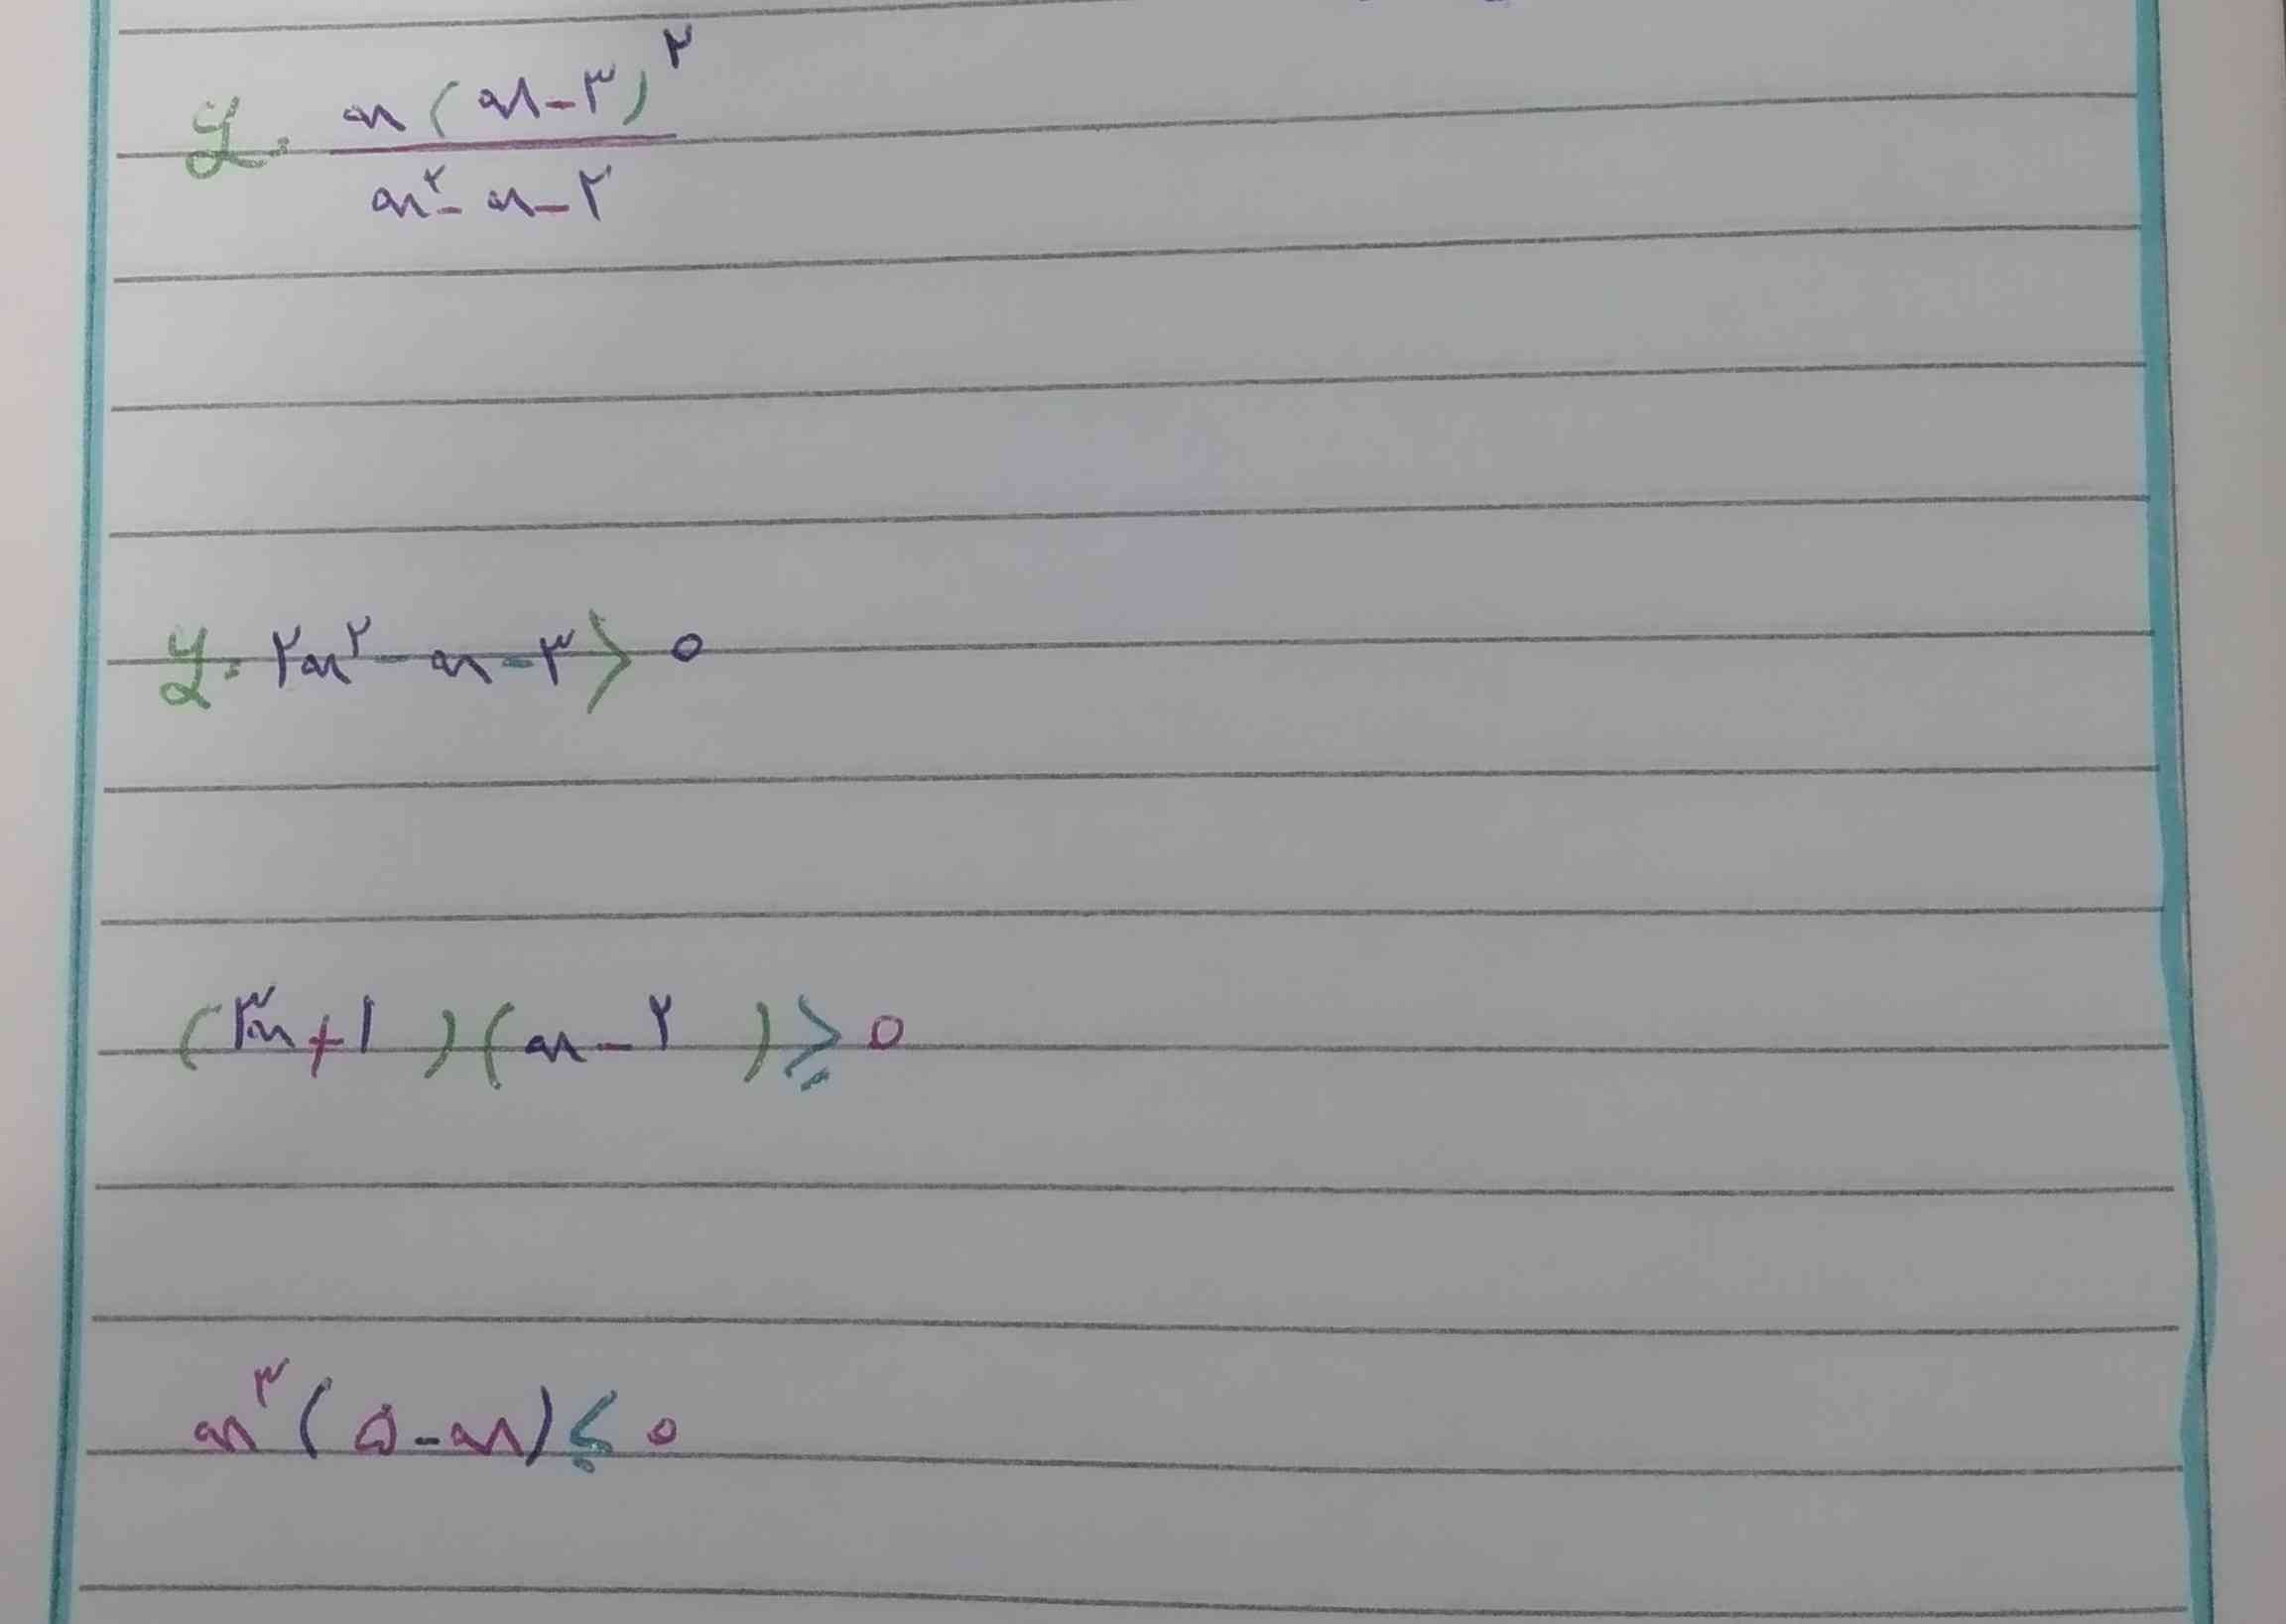 y = x(x-۳)^۲ / x^۲ - x - ۲
y = ۲x^۲ - x - ۳ > ۰
(۳x+۱)(x-۲) ≥ ۰
x^۳(۵-x) ≤ ۰